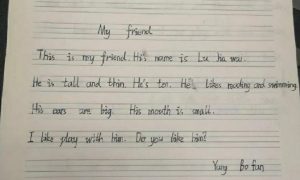 My friend
This is my friend. His name is Lu Jia
He is tall and thin. He's ten. He likes reading and swimming
His ears are big. His mouth is small.
I like play with him. Do you like him?
Yang Bo fan